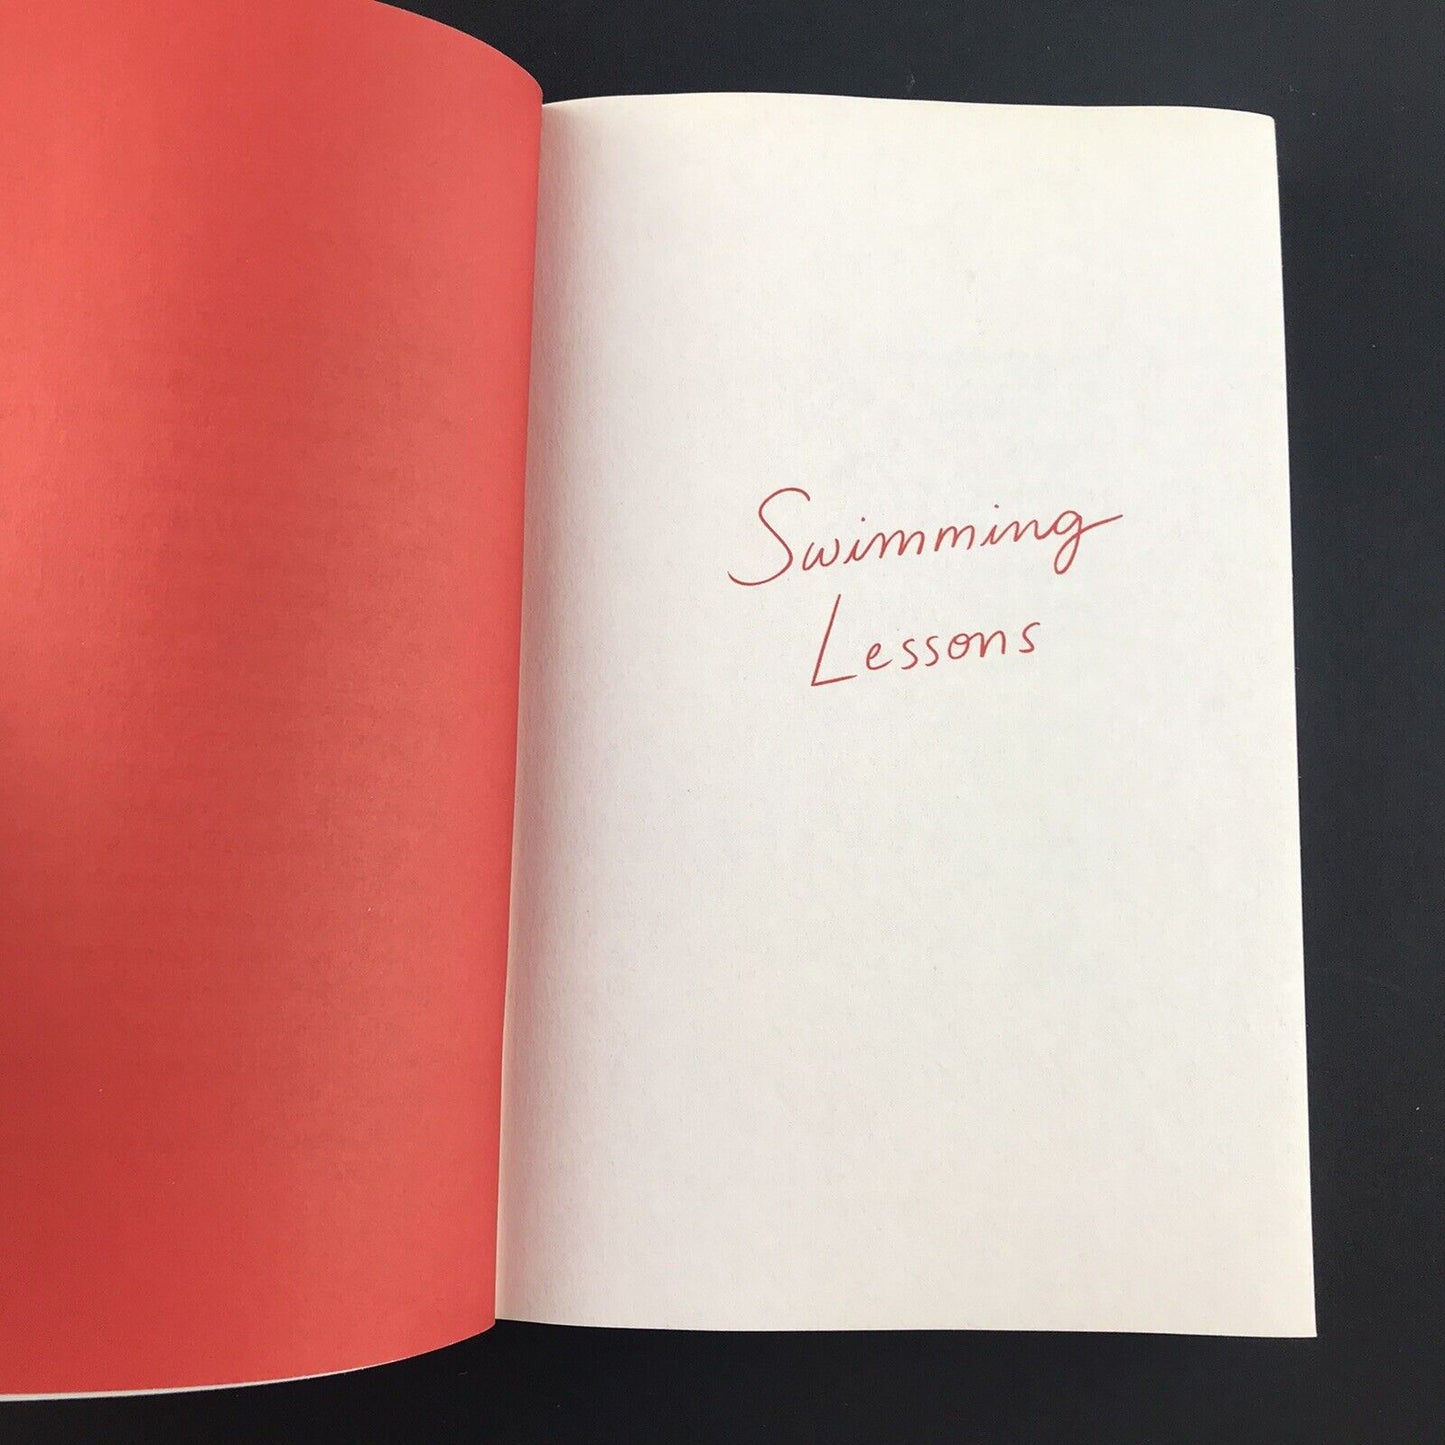 Swimming
Lessons